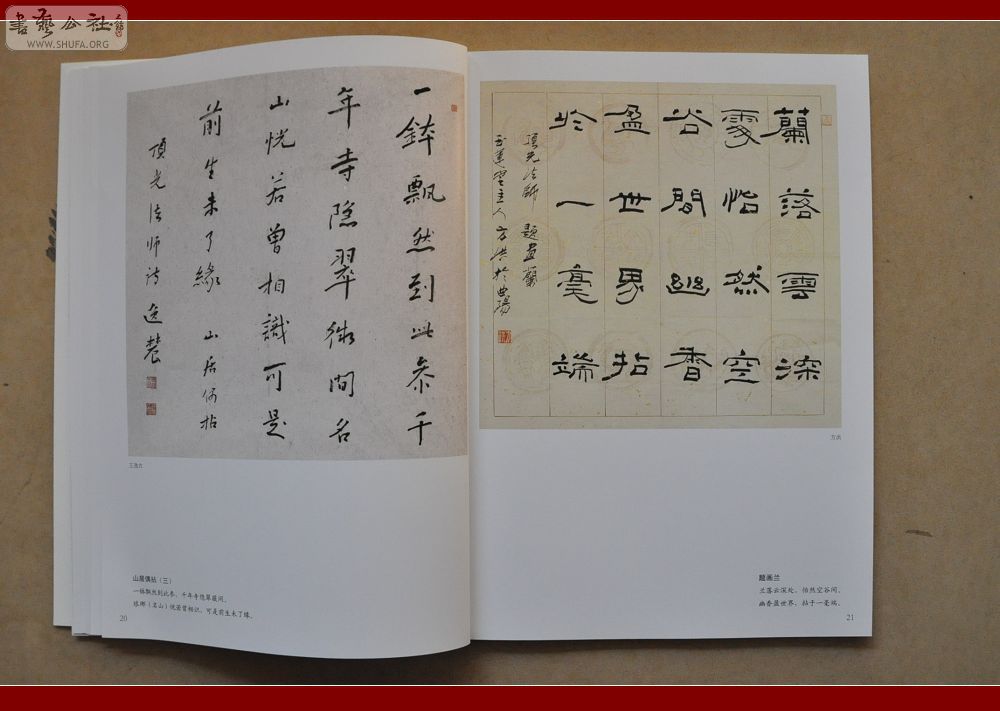 書藝公社
WWW.SHUFA.ORG
一鉢飄然到此參千
年寺隱翠微間名
山恍若曾相識可是
前生未了緣 山居偶拈
頂光法師詩
山居偶拈（三）
一钵飘然到此参，千年寺隐翠薇间。
琅琊（名山）恍若曾相识，可是前生未了缘。
20
蘭落雲深
處怡然空
谷間幽香
盈世界拈
於一毫端
頂光法師 題畫蘭
主人方洪於曲陽
方洪
题画兰
兰落云深处，怡然空谷间。
幽香盈世界，拈于一毫端。
21